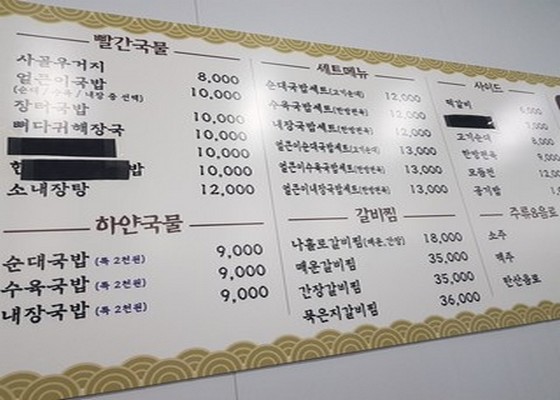 빨간국물
사골우거지 8,000
얼큰이국밥 10,000
(순대 / 수육 / 내장 중 선택)
장터국밥 10,000
뼈다귀해장국 10,000
10,000
밥 10,000
소내장탕 12,000
하얀국물
순대국밥 (특 2천원) 9,000
수육국밥 (특 2천원) 9,000
내장국밥 (특 2천원) 9,000
세트메뉴
순대국밥세트(고기순대) 12,000
수육국밥세트(한방편육) 12,000
내장국밥세트(한방편육) 12,000
얼큰이순대국밥세트(고기순대) 13,000
얼큰이수육국밥세트(한방편육) 13,000
얼큰이내장국밥세트(한방편육) 13,000
갈비찜
나홀로갈비찜(매운,간장) 18,000
매운갈비찜 35,000
간장갈비찜 35,000
묵은지갈비찜 36,000
사이드
떡갈비 6,000
고기순대 8,000
한방편육
모듬전
공기밥
주류&음료
소주
맥주
탄산음료